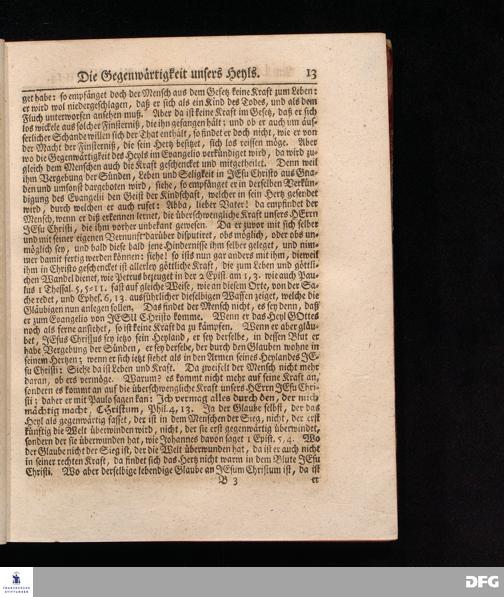 Die Gegenwärtigkeit unsers Heyls. 13
get habe: so empfänget doch der Mensch aus dem Gesetz keine Kraft zum Leben:
er wird wol niedergeschlagen, daß er sich als ein Kind des Todes, und als dem
Fluch unterworfen ansehen muß. Aber da ist keine Kraft im Gesetz, daß er sich
los wickele aus solcher Finsterniß, die ihn gefangen hält: und ob er auch um äus-
serlicher Schande willen sich der That enthält, so findet er doch nicht, wie er von
der Macht der Finsterniß, die sein Hertz besitzet, sich los reissen möge. Aber
wo die Gegenwärtigkeit des Heyls im Evangelio verkündiget wird, da wird zu-
gleich dem Menschen auch die Kraft geschencket und mitgetheilet. Denn weil
ihm Vergebung der Sünden, Leben und Seligkeit in JEsu Christo aus Gna-
den und umsonst dargeboten wird, siehe, so empfänget er in derselben Verkün-
digung des Evangelii den Geist der Kindschaft, welcher in sein Hertz gesendet
wird, durch welchen er auch rufet: Abba, lieber Vater! da empfindet der
Mensch, wenn er diß erkennen lernet, die überschwengliche Kraft unsers HErrn
JEsu Christi, die ihm vorher unbekant gewesen. Da er zuvor mit sich selber
und mit seiner eigenen Vernunft darüber disputiret, obs möglich, oder obs un-
möglich sey, und bald diese bald jene Hindernisse ihm selber geleget, und nim-
mer damit fertig werden können: siehe! so ists nun gar anders mit ihm, dieweil
ihm in Christo geschencket ist allerley göttliche Kraft, die zum Leben und göttli-
chen Wandel dienet, wie Petrus bezeuget in der 2 Epist. am 1, 3. wie auch Pau-
lus 1 Thessal. 5, 5=11. fast auf gleiche Weise, wie an diesem Orte, von der Sa-
che redet, und Ephes. 6, 13. ausführlicher dieselbigen Waffen zeiget, welche die
Gläubigen nun anlegen sollen. Das findet der Mensch nicht, es sey denn, daß
er zum Evangelio von JESU CHristo komme. Wenn er das Heyl GOttes
noch als ferne ansiehet, so ist keine Kraft da zu kämpfen. Wenn er aber gläu-
bet, JEsus Christus sey ietzo sein Heyland, er sey derselbe, in dessen Blut er
habe Vergebung der Sünden, er sey derselbe, der durch den Glauben wohne in
seinem Hertzen; wenn er sich ietzt siehet als in den Armen seines Heylandes JE-
su Christi: Siehe da ist Leben und Kraft. Da zweifelt der Mensch nicht mehr
daran, ob ers vermöge. Warum? es kommt nicht mehr auf seine Kraft an,
sondern es kommt an auf die überschwengliche Kraft unsers HErrn JEsu Chri-
sti: daher er mit Paulo sagen kan: Ich vermag alles durch den, der mich
mächtig macht, CHristum, Phil. 4, 13. Ja der Glaube selbst, der das
Heyl als gegenwärtig fasset, der ist in dem Menschen der Sieg, nicht, der erst
künftig die Welt überwinden wird, nicht, der sie erst gegenwärtig überwindet,
sondern der sie überwunden hat, wie Johannes davon saget 1 Epist. 5, 4. Wo
der Glaube nicht der Sieg ist, der die Welt überwunden hat, da ist er auch nicht
in seiner rechten Kraft, da findet sich das Hertz nicht warm in dem Blute JEsu
Christi. Wo aber derselbige lebendige Glaube an JEsum Christum ist, da ist
B 3 er
FRANCKESCHE STIFTUNGEN
DFG